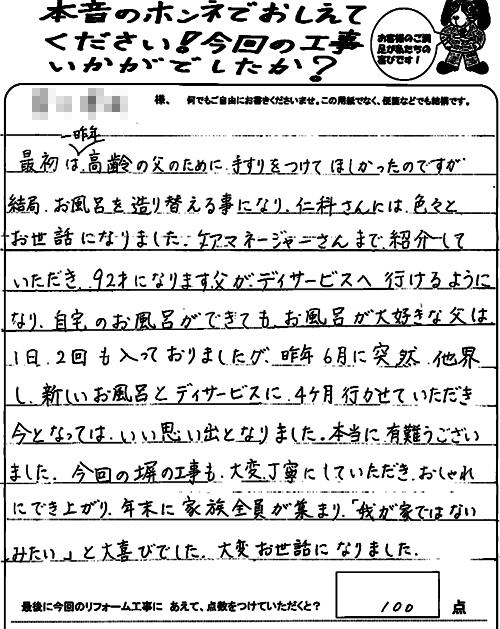 本音のホンネでおしえて
ください!今回の工事
いかがでしたか?
お客様のご満
足が私たちの
喜びです!
様、 何でもご自由にお書きくださいませ。この用紙でなく、便箋などでも結構です。
一昨年
最初は高齢の父のために手すりをつけてほしかったのですが
結局、お風呂を造り替える事になり、仁科さんには、色々と
お世話になりました。ケアマネージャーさんまで紹介して
いただき、92才になります父がデイサービスへ行けるように
なり、自宅のお風呂ができても、お風呂が大好きな父は
1日、2回も入っておりましたが、昨年6月に突然、他界
し、新しいお風呂とデイサービスに、4ケ月行かせていただき
今となっては、いい思い出となりました。本当に有難うござい
ました。今回の塀の工事も、大変丁寧にしていただき、おしゃれ
にでき上がり、年末に家族全員が集まり、「我が家ではない
みたい」と大喜びでした。大変お世話になりました。
最後に今回のリフォーム工事に あえて、点数をつけていただくと? 100 点